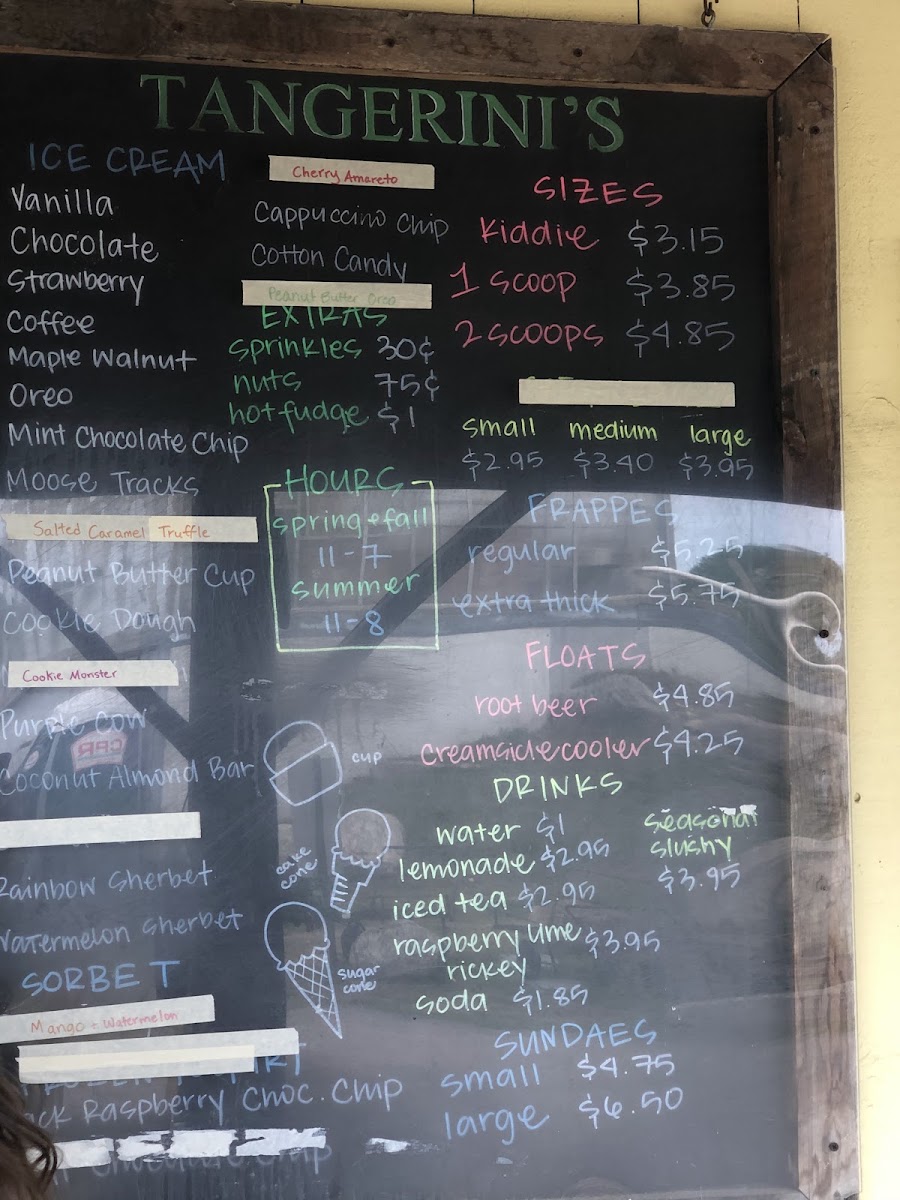 TANGERINI'S
ICE CREAM
Vanilla
Chocolate
Strawberry
Coffee
Maple Walnut
Oreo
Mint Chocolate Chip
Moose Tracks
Salted Caramel Truffle
Peanut Butter Cup
Cookie Dough
Cookie Monster
Purple Cow
Coconut Almond Bar
Rainbow Sherbet
Watermelon Sherbet
SORBET
Mango + Watermelon
Raspberry Choc. Chip
Cherry Amareto
Cappuccino Chip
Cotton Candy
Peanut Butter Oreo
EXTRAS
sprinkles 30¢
nuts 75¢
hot fudge $1
HOURS
spring + fall
11-7
summer
11-8
cup
cake
cone
sugar
cone
SIZES
kiddie $3.15
1 scoop $3.85
2 scoops $4.85
small medium large
$2.95 $3.40 $3.95
FRAPPES
regular $5.25
extra thick $5.75
FLOATS
root beer $4.85
creamsicle cooler $4.25
DRINKS
water $1
lemonade $2.95
iced tea $2.95
raspberry lime
rickey $3.95
soda $1.85
seasonal
slushy
$3.95
SUNDAES
small $4.75
large $6.50